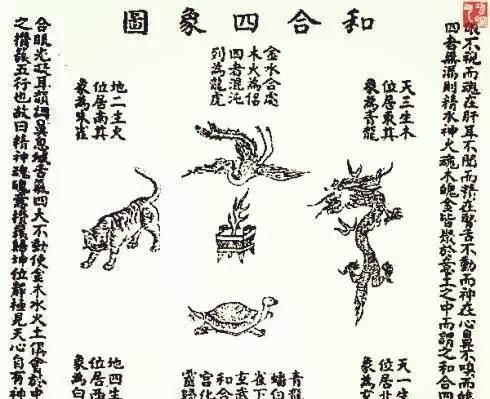 和合四象圖
眼不視而魂在肝耳不聞而精在腎舌不動而神在心鼻不嗅而魄
四者無漏則精水神火魂木魄金皆聚於意土之中而謂之和合四
天三生木
位居東其
象為青龍
天一生
位居北
象為玄
金水合處
木火為侶
四者混沌
列為龍虎
青龍
蟠白
雀下
玄武
和合
宮化
地二生火
位居南其
象為朱雀
地四生
位居西
象為白
合眼光凝耳韻調鼻息緘舌氣四大不動使金木水火土俱會於中
之攢簇五行也故曰精神魂魄意攢簇歸坤位靜極見天心自有神